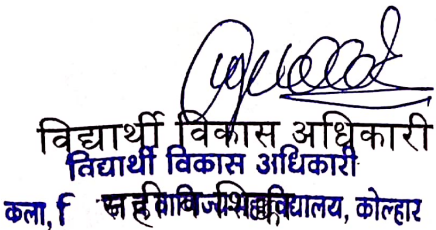 विद्यार्थी विकास अधिकारी
विद्यार्थी विकास अधिकारी
कला, महाविद्यालय, कोल्हार